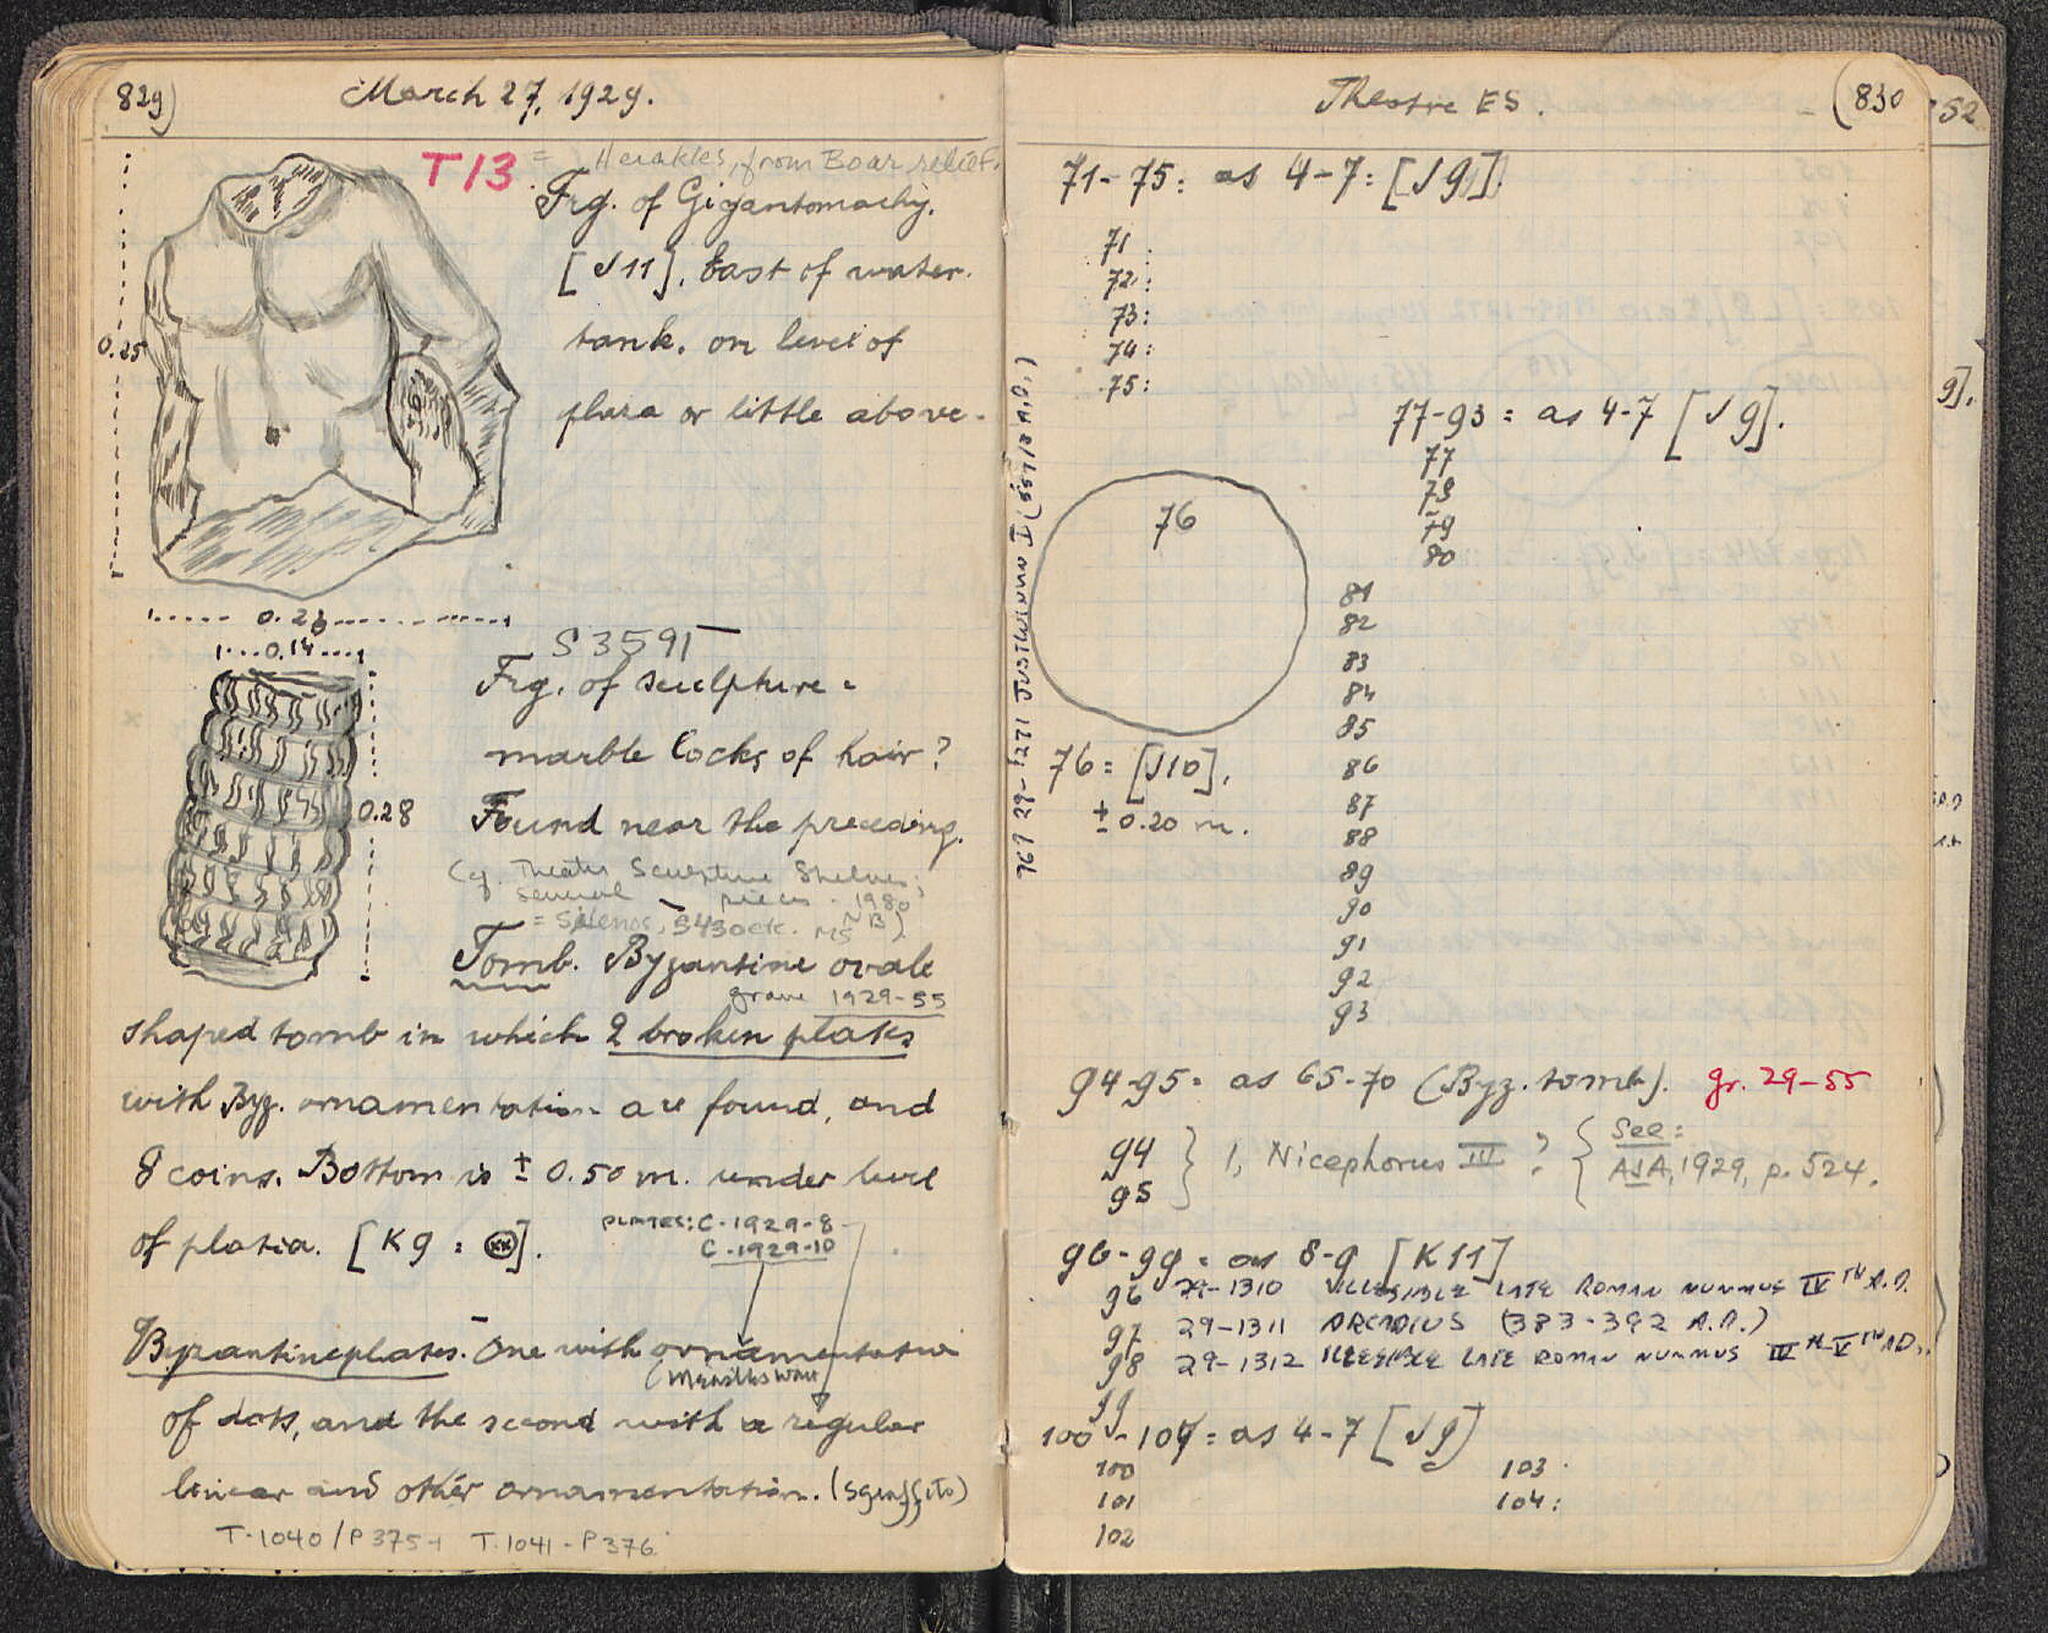 829)
March 27, 1929.
T13 = Herakles, from Boar relief.
Frg. of Gigantomachy.
[J11], East of water-
tank, on level of
plaza or little above.
0.25
0.23
S 3595
0.14
Frg. of sculpture =
marble locks of hair?
0.28
Found near the preceding.
(cf. Theater Sculpture Shelves;
several pieces - 1980
= Silenos, S430 etc. MS NB)
Tomb. Byzantine ovale
grave 1929-55
shaped tomb in which 2 broken plaks
with Byz. ornamentation are found, and
8 coins. Bottom is ± 0.50 m. under level
of platia. [K9 : ].
PLATES: C-1929-8
C-1929-10
Byzantine plates. One with ornamentation
(Measles ware
of dots, and the second with a regular
linear and other ornamentation. (sgraffito)
T-1040/P375 T.1041-P376
Theatre ES.
(830
71-75: as 4-7: [J9].
71:
72:
73:
74:
75:
969 29-1271 JUSTINIANUS I (557/8 A.D.)
76
76 = [J10].
± 0.20 m.
77-93 = as 4-7 [J9].
77
78
79
80
81
82
83
84
85
86
87
88
89
90
91
92
93
94-95 = as 65-70 (Byz. tomb). gr. 29-55
94
95
} 1, Nicephorus III ? { See:
AJA, 1929, p. 524.
96-99 = as 8-9 [K11]
96 29-1310 ILLEGIBLE LATE ROMAN NUMMUS IVTH A.D.
97 29-1311 ARCADIUS (383-392 A.D.)
98 29-1312 ILLEGIBLE LATE ROMAN NUMMUS IIITH-VTH A.D.
99
100-104 = as 4-7 [J9]
100
101
102
103
104:
52
9].